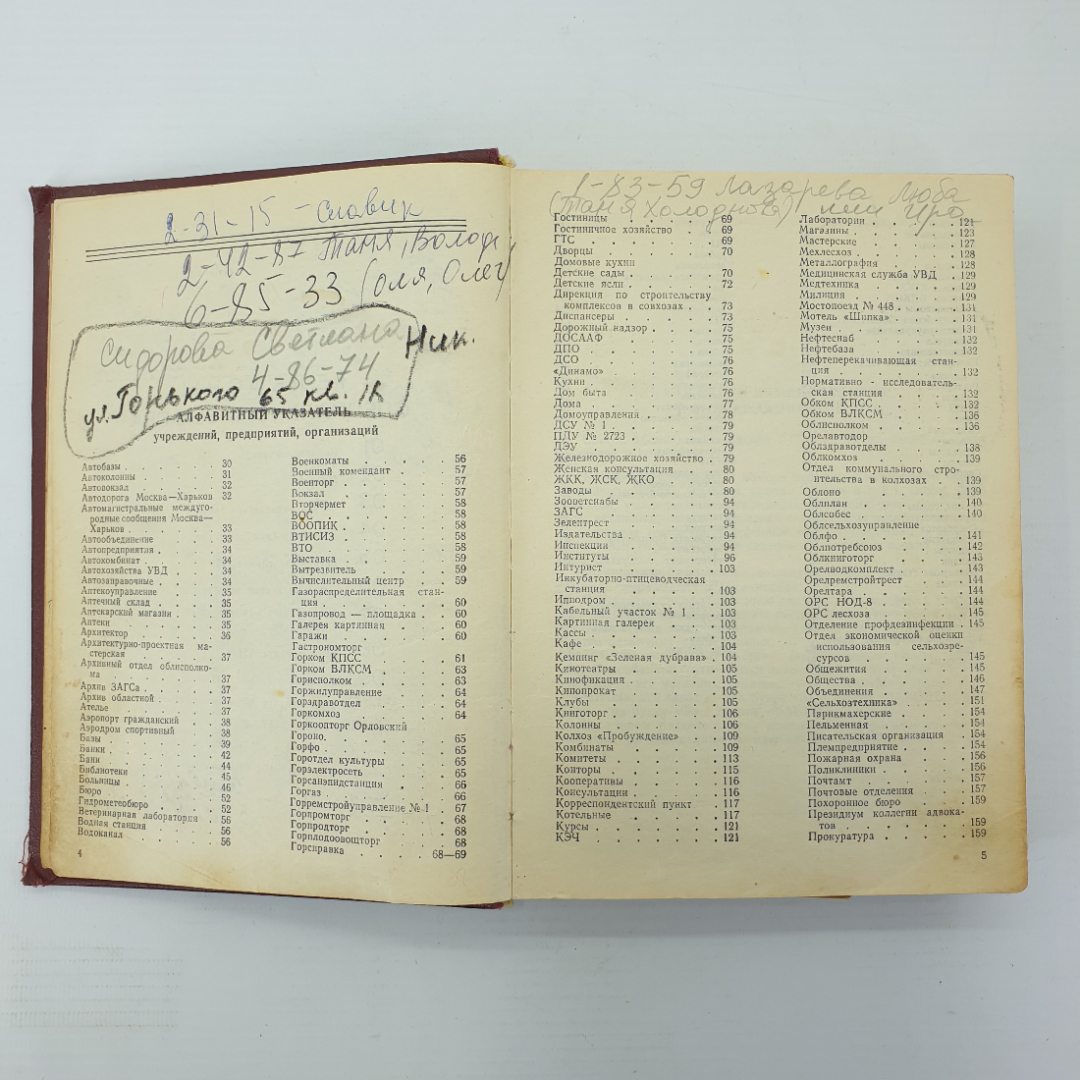 2-31-15 – Славик
2-42-87 Таня, Володя
6-85-33 (Оля, Олег)
Сидорова Светлана Ник.
4-86-74
ул. Горького 65 кв. 12
АЛФАВИТНЫЙ УКАЗАТЕЛЬ
учреждений, предприятий, организаций
Автобазы . . . . . . . 30
Автоколонны . . . . . . 31
Автовокзал . . . . . . 32
Автодорога Москва—Харьков 32
Автомагистральные междуго-
родные сообщения Москва—
Харьков . . . . . . . 33
Автообъединение . . . . 33
Автопредприятия . . . . 34
Автокомбинат . . . . . 34
Автохозяйства УВД . . . 34
Автозаправочные . . . . 34
Аптекоуправление . . . . 35
Аптечный склад . . . . . 35
Аптекарский магазин . . . 35
Аптеки . . . . . . . 35
Архитектор . . . . . . 36
Архитектурно-проектная ма-
стерская . . . . . . . 37
Архивный отдел облисполко-
ма . . . . . . . . 37
Архив ЗАГСа . . . . . . 37
Архив областной . . . . 37
Ателье . . . . . . . 37
Аэропорт гражданский . . 38
Аэродром спортивный . . 38
Базы . . . . . . . . 39
Банки . . . . . . . . 42
Бани . . . . . . . . 44
Библиотеки . . . . . . 45
Больницы . . . . . . . 46
Бюро . . . . . . . . 52
Гидрометеобюро . . . . 52
Ветеринарная лаборатория 56
Водная станция . . . . 56
Водоканал . . . . . . 56
4
Военкоматы . . . . . . 56
Военный комендант . . . 57
Военторг . . . . . . . 57
Вокзал . . . . . . . 57
Вторчермет . . . . . . 58
ВОС . . . . . . . . 58
ВООПИК . . . . . . . 58
ВТИСИЗ . . . . . . . 58
ВТО . . . . . . . . 58
Выставка . . . . . . . 59
Вытрезвитель . . . . . 59
Вычислительный центр . . 59
Газораспределительная стан-
ция . . . . . . . . 60
Газопровод — площадка . . 60
Галерея картинная . . . 60
Гаражи . . . . . . . 60
Гастрономторг
Горком КПСС . . . . . 61
Горком ВЛКСМ . . . . . 63
Горисполком . . . . . . 63
Горжилуправление . . . . 64
Горздравотдел . . . . . 64
Горкомхоз . . . . . . 64
Горкоопторг Орловский
Гороно . . . . . . . 65
Горфо . . . . . . . . 65
Горотдел культуры . . . 65
Горэлектросеть . . . . . 65
Горсанэпидстанция . . . 65
Горгаз . . . . . . . . 66
Горремстройуправление № 1 . 67
Горпромторг . . . . . . 68
Горпродторг . . . . . . 68
Горплодоовощторг . . . . 68
Горсправка . . . . 68—69
1-83-59 Лазарева Люба
(Таня Холоднова) или Ира
Гостиницы . . . . . . 69
Гостиничное хозяйство . . 69
ГТС . . . . . . . . 69
Дворцы . . . . . . . 70
Домовые кухни
Детские сады . . . . . 70
Детские ясли . . . . . 72
Дирекция по строительству
комплексов в совхозах . . 73
Диспансеры . . . . . . 73
Дорожный надзор . . . . 75
ДОСААФ . . . . . . . 75
ДПО . . . . . . . . 75
ДСО . . . . . . . . 76
«Динамо» . . . . . . . 76
Кухни . . . . . . . . 76
Дом быта . . . . . . . 76
Дома . . . . . . . . 77
Домоуправления . . . . . 78
ДСУ № 1 . . . . . . . 79
ПДУ № 2723 . . . . . . 79
ДЭУ . . . . . . . . 79
Железнодорожное хозяйство . 79
Женская консультация . . 80
ЖКК, ЖСК, ЖКО . . . . 80
Заводы . . . . . . . 80
Зооветснабы . . . . . . 94
ЗАГС . . . . . . . . 94
Зелентрест . . . . . . 94
Издательства . . . . . . 94
Инспекции . . . . . . 94
Институты . . . . . . 96
Интурист . . . . . . . 103
Инкубаторно-птицеводческая
станция . . . . . . . 103
Ипподром . . . . . . . 103
Кабельный участок № 1 . . 103
Картинная галерея . . . 103
Кассы . . . . . . . . 103
Кафе . . . . . . . . 104
Кемпинг «Зеленая дубрава» . 104
Кинотеатры . . . . . . 105
Кинофикация . . . . . . 105
Кинопрокат . . . . . . 105
Клубы . . . . . . . . 105
Книготорг . . . . . . . 106
Колонны . . . . . . . 106
Колхоз «Пробуждение» . . 109
Комбинаты . . . . . . 109
Комитеты . . . . . . . 113
Конторы . . . . . . . 115
Кооперативы . . . . . . 116
Консультации . . . . . . 116
Корреспондентский пункт . 117
Котельные . . . . . . 117
Курсы . . . . . . . . 121
КЭЧ . . . . . . . . 121
Лаборатории . . . . . . 121
Магазины . . . . . . . 123
Мастерские . . . . . . 127
Мехлесхоз . . . . . . . 128
Металлография . . . . . 128
Медицинская служба УВД . 129
Медтехника . . . . . . 129
Милиция . . . . . . . 129
Мостопоезд № 448 . . . . 131
Мотель «Шипка» . . . . 131
Музеи . . . . . . . . 131
Нефтеснаб . . . . . . 132
Нефтебаза . . . . . . 132
Нефтеперекачивающая стан-
ция . . . . . . . . 132
Нормативно - исследователь-
ская станция . . . . . 132
Обком КПСС . . . . . . 132
Обком ВЛКСМ . . . . . 136
Облисполком . . . . . . 136
Орелавтодор
Облздравотделы . . . . . 138
Облкомхоз . . . . . . 139
Отдел коммунального стро-
ительства в колхозах . . 139
Облоно . . . . . . . 139
Облплан . . . . . . . 140
Облсобес . . . . . . . 140
Облсельхозуправление
Облфо . . . . . . . . 141
Облпотребсоюз . . . . . 142
Облкниготорг . . . . . . 143
Орелводкомплект . . . . 143
Орелремстройтрест . . . 144
Орелтара . . . . . . . 144
ОРС НОД-8 . . . . . . 144
ОРС лесхоза . . . . . . 145
Отделение профдезинфекции . 145
Отдел экономической оценки
использования сельхозре-
сурсов . . . . . . . 145
Общежития . . . . . . 145
Общества . . . . . . . 146
Объединения . . . . . . 147
«Сельхозтехника» . . . . 151
Парикмахерские . . . . . 154
Пельменная . . . . . . 154
Писательская организация . 154
Племпредприятие . . . . 154
Пожарная охрана . . . . 156
Поликлиники . . . . . . 156
Почтамт . . . . . . . 157
Почтовые отделения . . . 157
Похоронное бюро . . . . 159
Президиум коллегии адвока-
тов . . . . . . . . 159
Прокуратура . . . . . . 159
5